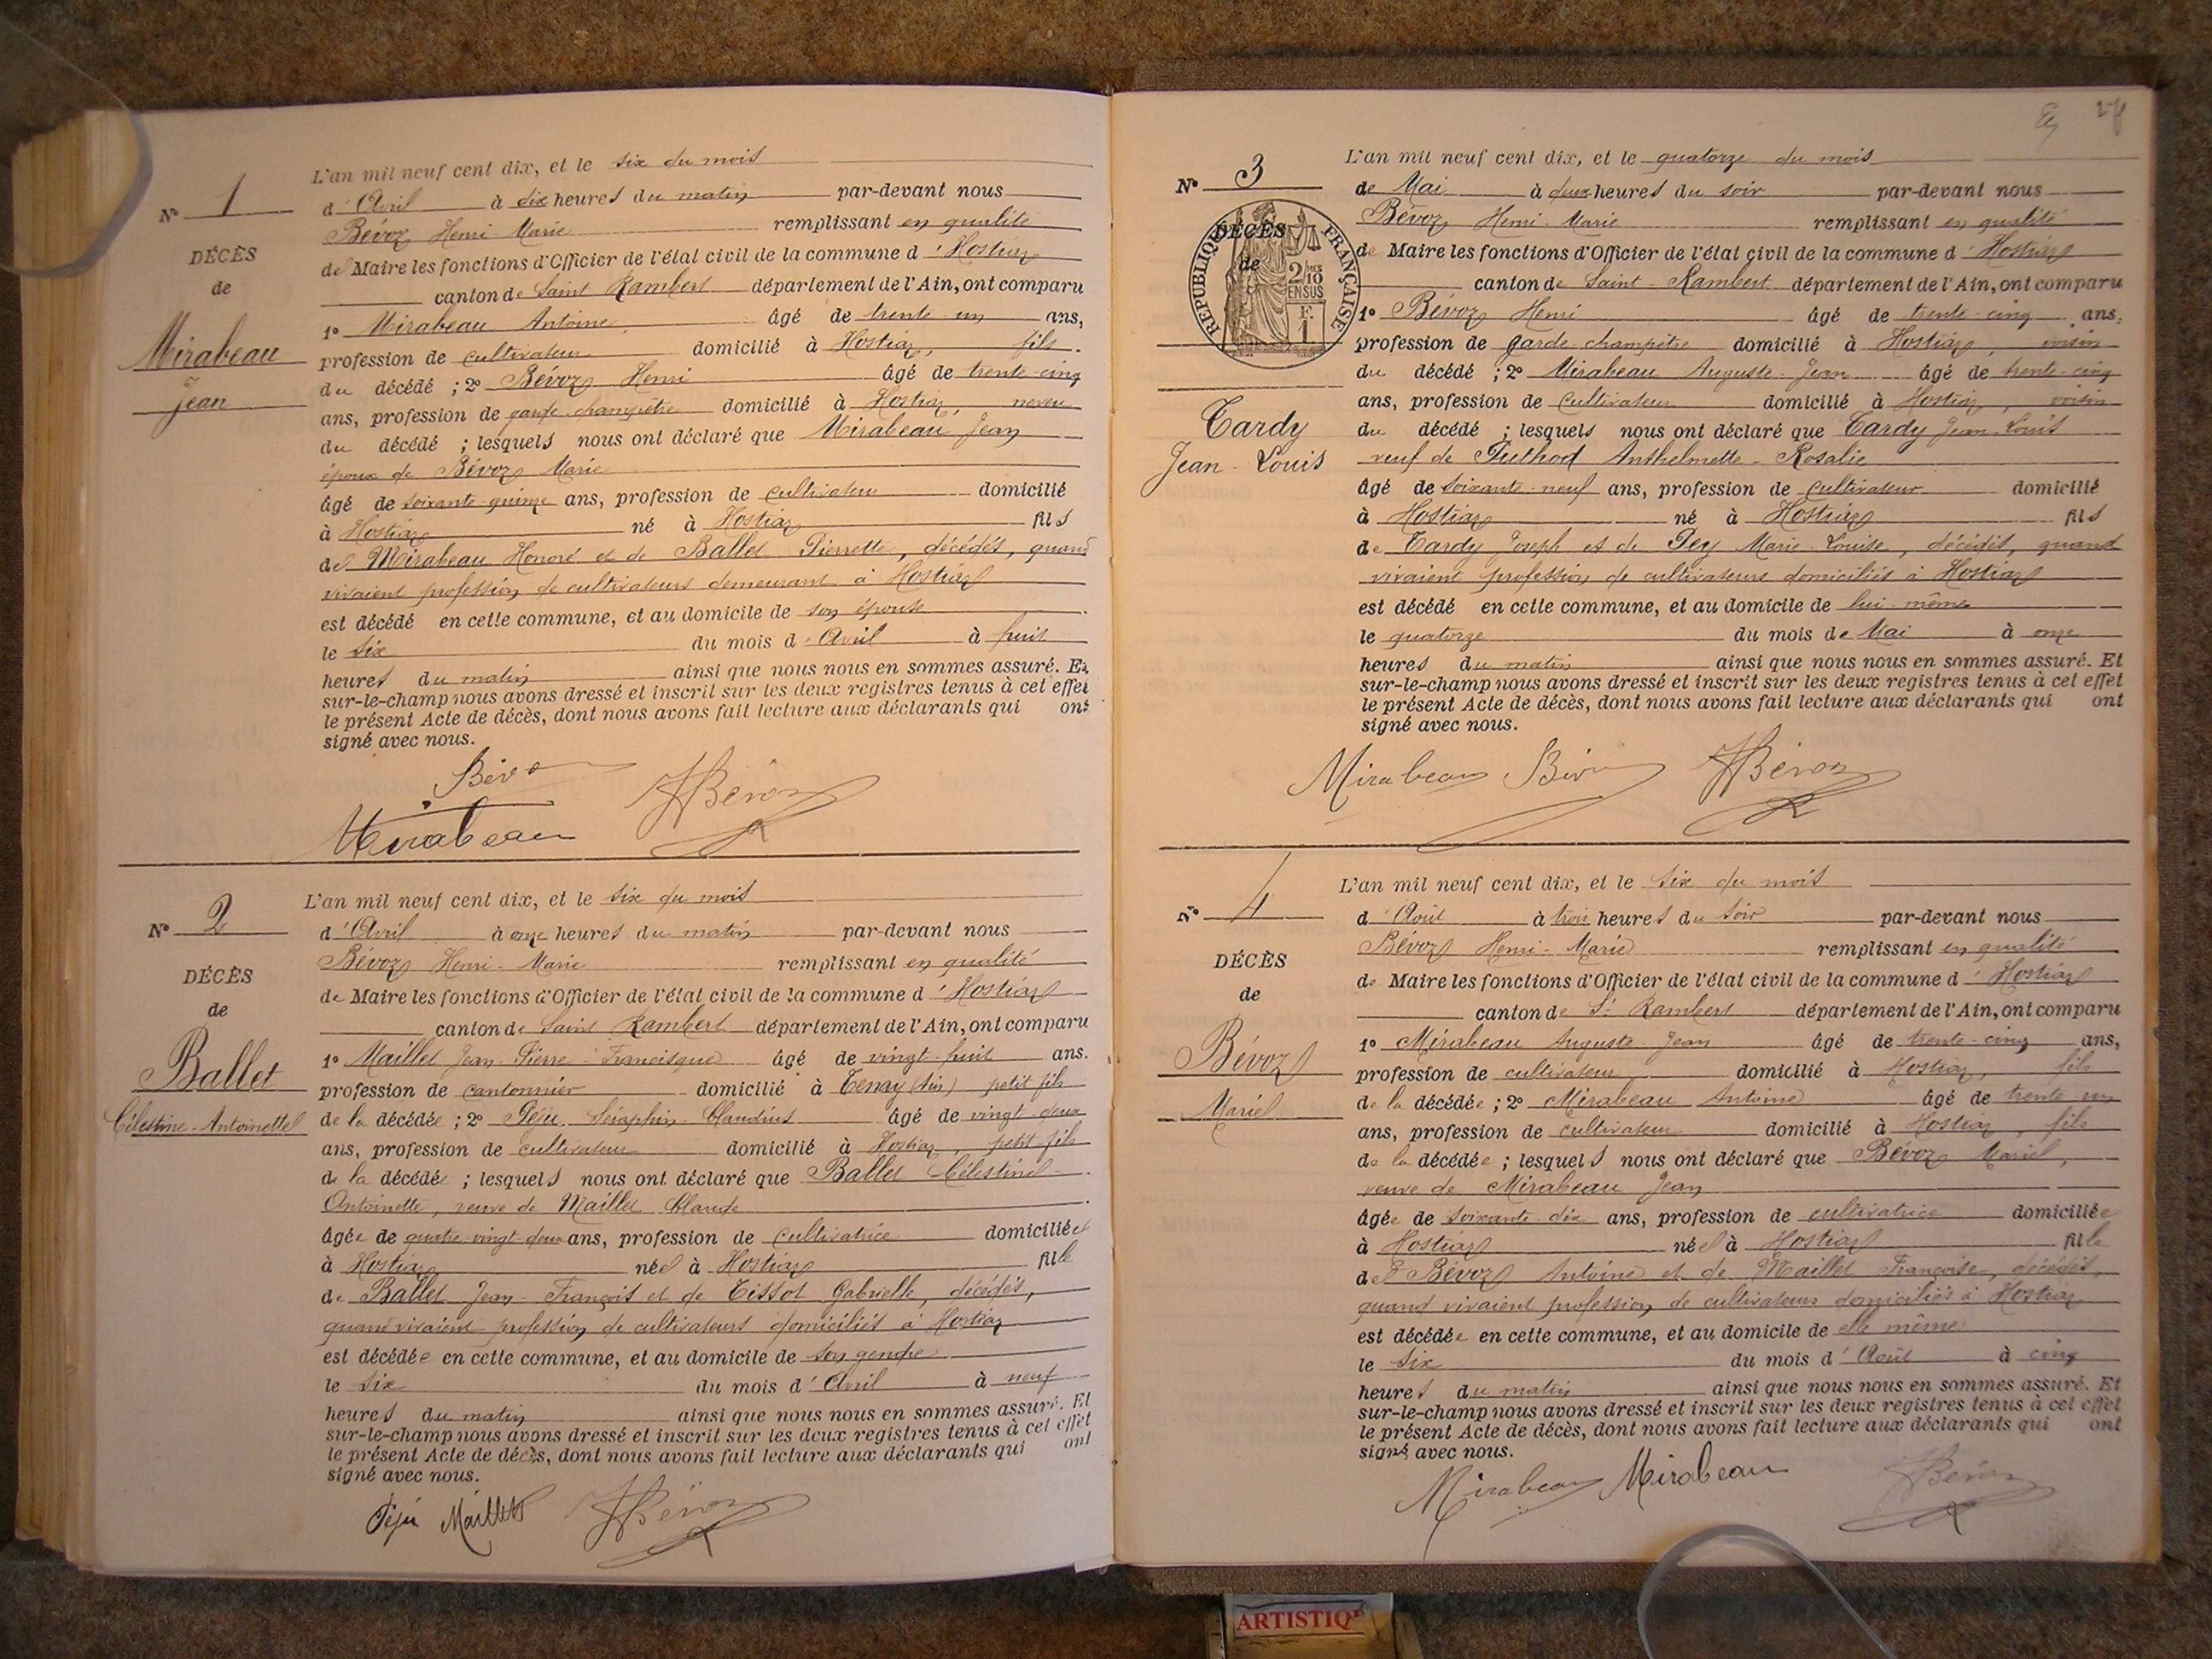 N° 1
DÉCÈS
de
Mirabeau
Jean
L'an mil neuf cent dix, et le six du mois
d'Avril à dix heures du matin par-devant nous
Bévoz Henri-Marie remplissant en qualité
de Maire les fonctions d'Officier de l'état civil de la commune d'Hostiaz
canton de Saint Rambert département de l'Ain, ont comparu
1° Mirabeau Antoine, âgé de trente-un ans,
profession de cultivateur domicilié à Hostiaz, fils
du décédé ; 2° Bévoz Henri âgé de trente-cinq
ans, profession de garde-champêtre domicilié à Hostiaz, neveu
du décédé ; lesquels nous ont déclaré que Mirabeau Jean
époux de Bévoz Marie
âgé de soixante-quinze ans, profession de cultivateur domicilié
à Hostiaz né à Hostiaz fils
de Mirabeau Honoré et de Ballet Pierrette, décédés, quand
vivaient profession de cultivateurs demeurant à Hostiaz
est décédé en cette commune, et au domicile de son épouse
le six du mois d'Avril à huit
heures du matin ainsi que nous nous en sommes assuré. Et
sur-le-champ nous avons dressé et inscrit sur les deux registres tenus à cet effet
le présent Acte de décès, dont nous avons fait lecture aux déclarants qui ont
signé avec nous.
Bévoz
HBévoz
Mirabeau
N° 2
DÉCÈS
de
Ballet
Célestine-Antoinette
L'an mil neuf cent dix, et le six du mois
d'Avril à onze heures du matin par-devant nous
Bévoz Henri-Marie remplissant en qualité
de Maire les fonctions d'Officier de l'état civil de la commune d'Hostiaz
canton de Saint Rambert département de l'Ain, ont comparu
1° Maillet Jean-Pierre-Francisque âgé de vingt-huit ans.
profession de cantonnier domicilié à Tenay (Ain) petit fils
de la décédée ; 2° Péju Séraphin-Claudius âgé de vingt-deux
ans, profession de cultivateur domicilié à Hostiaz, petit-fils
de la décédée ; lesquels nous ont déclaré que Ballet Célestine
Antoinette, veuve de Maillet Claude
âgée de quatre-vingt-deux ans, profession de cultivatrice domiciliée
à Hostiaz née à Hostiaz fille
de Ballet Jean-François et de Tissot Gabrielle, décédés,
quand vivaient profession de cultivateurs domiciliés à Hostiaz
est décédée en cette commune, et au domicile de son gendre
le six du mois d'Avril à neuf
heures du matin ainsi que nous nous en sommes assuré. Et
sur-le-champ nous avons dressé et inscrit sur les deux registres tenus à cet effet
le présent Acte de décès, dont nous avons fait lecture aux déclarants qui ont
signé avec nous.
Péju Maillet HBévoz
N° 3
DÉCÈS
de
RÉPUBLIQUE FRANÇAISE
2/10
EN SUS
F.
1
Tardy
Jean-Louis
L'an mil neuf cent dix, et le quatorze du mois
de Mai à deux heures du soir par-devant nous
Bévoz Henri-Marie remplissant en qualité
de Maire les fonctions d'Officier de l'état civil de la commune d'Hostiaz
canton de Saint-Rambert département de l'Ain, ont comparu
1° Bévoz Henri âgé de trente-cinq ans,
profession de garde-champêtre domicilié à Hostiaz, voisin
du décédé ; 2° Mirabeau Auguste-Jean âgé de trente-cinq
ans, profession de cultivateur domicilié à Hostiaz, voisin
du décédé ; lesquels nous ont déclaré que Tardy Jean-Louis
veuf de Puthod Anthelmette-Rosalie
âgé de soixante-neuf ans, profession de cultivateur domicilié
à Hostiaz né à Hostiaz fils
de Tardy Joseph et de Pey Marie-Louise, décédés, quand
vivaient profession de cultivateurs domiciliés à Hostiaz
est décédé en cette commune, et au domicile de lui-même
le quatorze du mois de Mai à onze
heures du matin ainsi que nous nous en sommes assuré. Et
sur-le-champ nous avons dressé et inscrit sur les deux registres tenus à cet effet
le présent Acte de décès, dont nous avons fait lecture aux déclarants qui ont
signé avec nous.
Mirabeau Bévoz HBévoz
N° 4
DÉCÈS
de
Bévoz
Marie
L'an mil neuf cent dix, et le six du mois
d'Août à trois heures du soir par-devant nous
Bévoz Henri-Marie remplissant en qualité
de Maire les fonctions d'Officier de l'état civil de la commune d'Hostiaz
canton de St Rambert département de l'Ain, ont comparu
1° Mirabeau Auguste-Jean âgé de trente-cinq ans,
profession de cultivateur domicilié à Hostiaz, fils
de la décédée ; 2° Mirabeau Antoine âgé de trente-un
ans, profession de cultivateur domicilié à Hostiaz, fils
de la décédée ; lesquels nous ont déclaré que Bévoz Marie,
veuve de Mirabeau Jean
âgée de soixante-dix ans, profession de cultivatrice domiciliée
à Hostiaz née à Hostiaz fille
de Bévoz Antoine et de Maillet Françoise, décédés,
quand vivaient profession de cultivateurs domiciliés à Hostiaz
est décédée en cette commune, et au domicile de elle même
le six du mois d'Août à cinq
heures du matin ainsi que nous nous en sommes assuré. Et
sur-le-champ nous avons dressé et inscrit sur les deux registres tenus à cet effet
le présent Acte de décès, dont nous avons fait lecture aux déclarants qui ont
signé avec nous.
Mirabeau Mirabeau HBévoz
ARTISTIQ